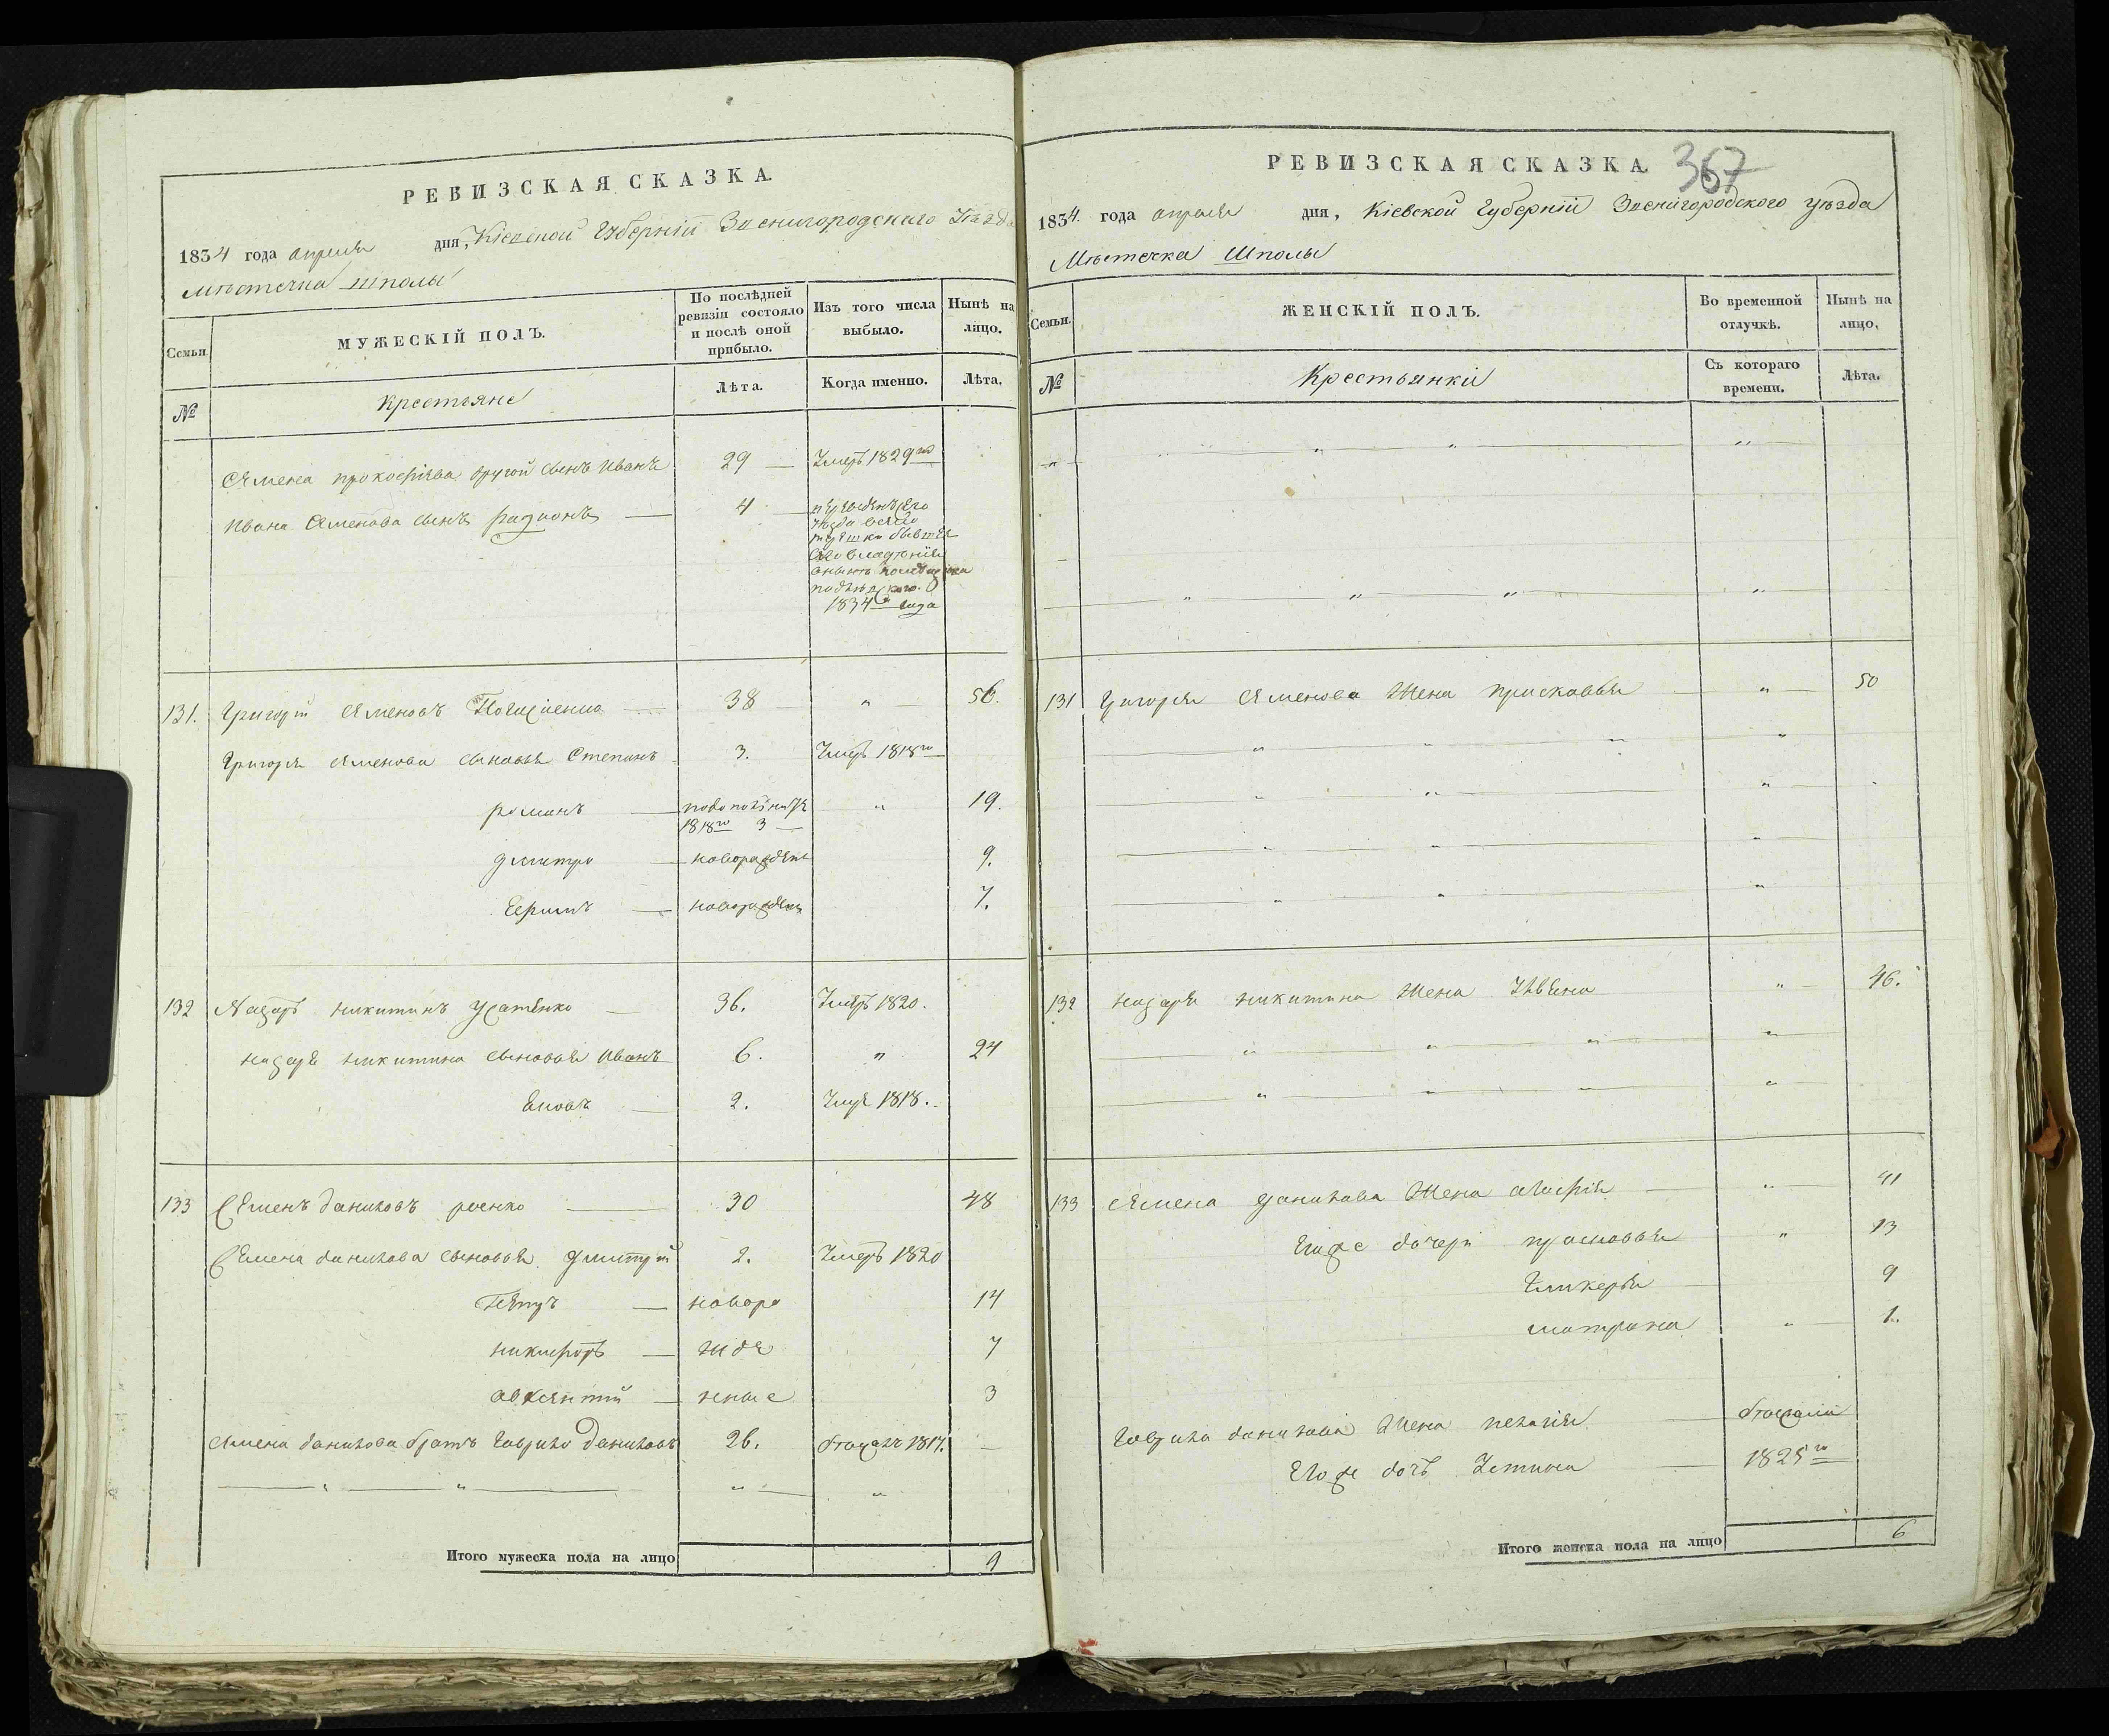 РЕВИЗСКАЯ СКАЗКА.
1834 года апреля дня, Кіевской Губерніи Звенигородскаго Уѣзда
мѣстечка шполы
Семьи.
МУЖЕСКІЙ ПОЛЪ.
По послѣдней ревизіи состояло и послѣ оной прибыло.
Изъ того числа выбыло.
Нынѣ на лицо.
№
Крестьяне
Лѣта.
Когда именно.
Лѣта.
Семена прокофіева другой сынъ Иванъ 29 Умеръ 1829го
Ивана Семенова сынъ радионъ 4
1834го года
131. Григорій Семеновъ 38 " 56.
Григорія Семенова сыновья Степанъ 3. Умеръ 1818го
романъ 19.
1818го 3
дмитро новорожденъ 9.
Ефимъ новорожденъ 7.
132 Назаръ никитинъ Усатенко 36. Умеръ 1820.
назара никитина сыновья Иванъ 6. " 24
2. Умре 1818.
133 Семенъ даниловъ роенко 30 48
Семена данилова сыновья дмитрій 2. Умеръ 1820
Петръ новоро 14
никифоръ жде 7
авксентій нные 3
Семена данилова братъ Гаврило даниловъ 26. 1817.
Итого мужеска пола на лицо 9
РЕВИЗСКАЯ СКАЗКА.
367
1834. года апреля дня, Кіевской Губерніи Звенигородского уѣзда
Мѣстечка Шполы
Семьи.
ЖЕНСКІЙ ПОЛЪ.
Во временной отлучкѣ.
Нынѣ на лицо.
№
Крестьянки
Съ котораго времени.
Лѣта.
131 Григорія Семенова Жена прискавья " 50
132 назара никитина Жена " 46.
133 Семена данилова Жена " 41
Егоже дочери прасковья " 13
Гликерья 9
матрона " 1.
Гаврила данилова Жена пелагія
Егоже дочь Устина 1825го
Итого женска пола на лицо 6